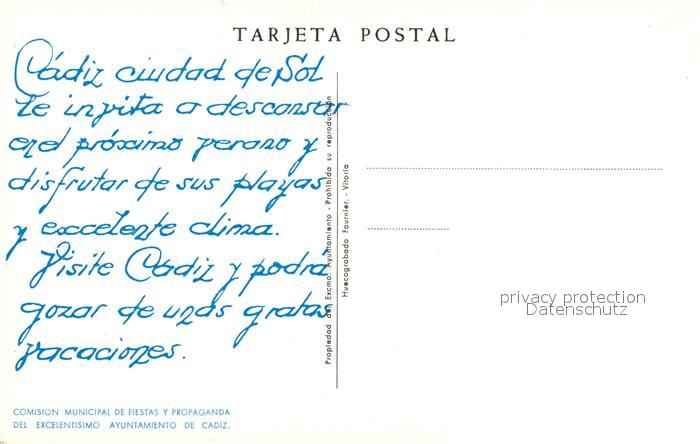 TARJETA POSTAL
Cádiz ciudad de Sol
te invita a descansar
en el próximo verano y
disfrutar de sus playas
y excelente clima.
Visite Cádiz y podrá
gozar de unas gratas
vacaciones.
COMISION MUNICIPAL DE FIESTAS Y PROPAGANDA
DEL EXCELENTISIMO AYUNTAMIENTO DE CADIZ.
Propiedad del Excmo. Ayuntamiento - Prohibida su reproducción
Huecograbado Fournier. - Vitoria
privacy protection
Datenschutz